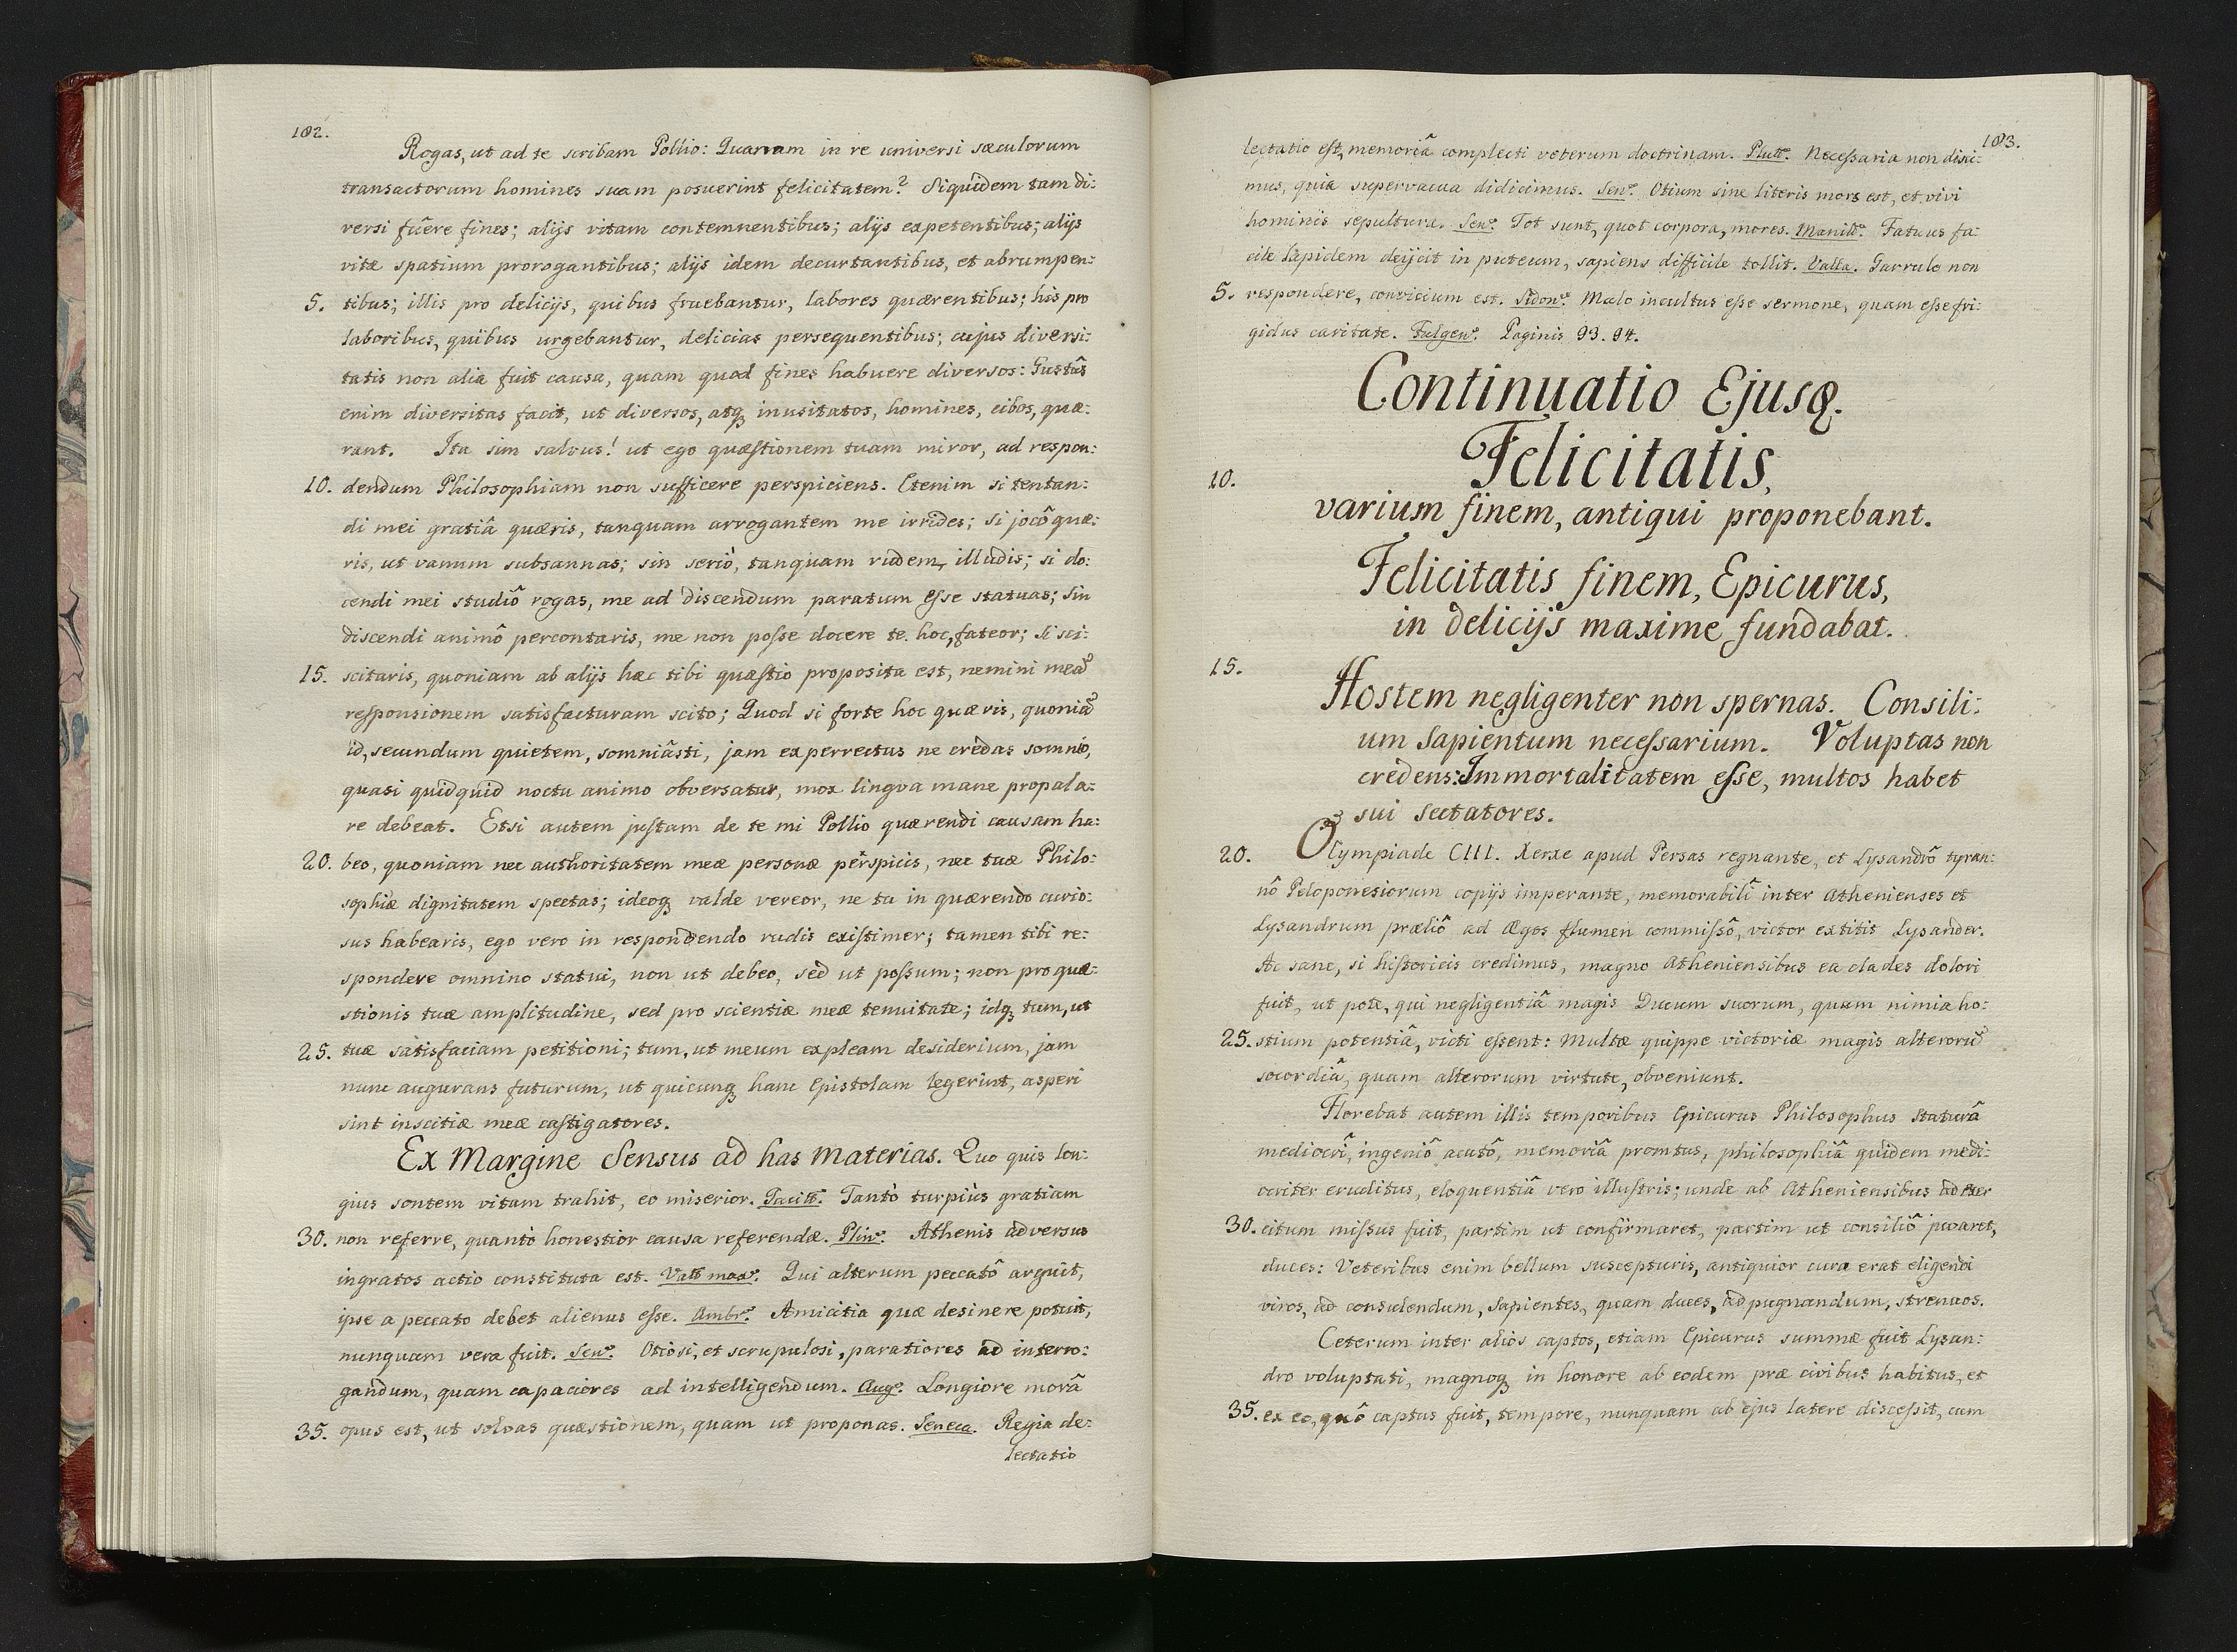 182.
Rogas, ut ad te scribam Pollio: Quanam in re universi sæculorum
transactorum homines suam posuerint felicitatem? Siquidem tam di:
versi fûere fines; alijs vitam contemnentibus; alijs expetentibus; alijs
vitæ spatium prorogantibus; alijs idem decurtantibus, et abrumpen:
5. tibus; illis pro delicijs, quibus fruebantur, labores quærentibus; his pro
laboribus, quibus urgebantur, delicias persequentibus; cujus diversi:
tatis non alia fuit causa, quam quod fines habuere diversos: Gustûs
enim diversitas facit, ut diversos, atq inusitatos, homines, cibos, quæ:
rant. Ita sim salvus! ut ego quæstionem tuam miror, ad respon:
10. dendum Philosophiam non sufficere perspiciens. Etenim si tentan:
di mei gratiâ quæris, tanquam arrogantem me irrides; si jocô quæ:
ris, ut vanum subsannas; sin seriò, tanquam rudem, illudis; si do:
cendi mei studiô rogas, me ad discendum paratum esse statuas; sin
discendi animô percontaris, me non posse docere te hoc, fateor; si sci:
15. scitaris, quoniam ab alijs hæc tibi quæstio proposita est, nemini mea͂
responsionem satisfacturam scito; Quod si forte hoc quæris, quonia͂
id, secundum quietem, somniâsti, jam experrectus ne credas somnio,
quasi quidquid noctu animo obversatur, mox lingva mane propala:
re debeat. Etsi autem justam de te mi Pollio quærendi causam ha:
20. beo, quoniam nec authoritatem meæ personæ perspicis, nec tuæ Philo:
sophiæ dignitatem spectas; ideoq valde vereor, ne tu in quærendo curio:
sus habearis, ego vero in respondendo rudis existimer; tamen tibi re:
spondere omnino statui, non ut debeo, sed ut possum; non pro quæ:
stionis tuæ amplitudine, sed pro scientiæ meæ tenuitate; idq tum, ut
25. tuæ satisfaciam petitioni; tum, ut meum expleam desiderium, jam
nunc augurans futurum, ut quicunq hanc Epistolam legerint, asperi
sint inscitiæ meæ castigatores.
Ex Margine Sensus ad has materias. Quo quis lon:
gius sontem vitam trahit, eo miserior. Tacitt. Tantò turpiùs gratiam
30. non referre, quantò honestior causa referendæ. Plin. Athenis adversus
ingratos actio constituta est. Vall max. Qui alterum peccatô arguit,
ipse a peccato debet alienus esse. Ambr. Amicitia quæ desinere potuit,
nunquam vera fuit. Sen. Otiosi, et scrupulosi, paratiores ad interro:
gandum, quam capaciores ad intelligendum. Aug. Longiore morâ
35. opus est, ut solvas quæstionem, quam ut proponas. Seneca. Regia de:
lectatio
183.
lectatio est, memoriâ complecti veterum doctrinam. Plutt. Necessaria non disci:
mus, quia supervacua didicimus. Sen. Otium sine literis mors est, et vivi
hominis sepultura. Sen. Tot sunt, quot corpora, mores. Manill. Fatuus fa:
cile lapidem dejicit in puteum, sapiens difficile tollit. Valla. Garrulo non
5. respondere, convicium est. Sidon. Malo incultus esse sermone, quam esse fri:
gidus caritate. Fulgen. Paginis 93. 94.
Continuatio Ejusq.
10. Felicitatis,
varium finem, antiqui proponebant.
Felicitatis finem, Epicurus,
in delicijs maxime fundabat.
15.
Hostem negligenter non spernas. Consili:
um Sapientum necessarium. Voluptas non
credens: Immortalitatem esse, multos habet
sui sectatores.
20. Olympiade CIII. Xerxe apud Persas regnante, et Lysandrô tyran:
nô Peloponesiorum copijs imperante, memorabilî inter Athenienses et
Lysandrum præliô ad Ægos flumen commissô, victor extitit Lysander.
Ac sane, si historicis credimus, magno Atheniensibus ea clades dolori
fuit, ut pote, qui negligentiâ magis Ducum suorum, quam nimia ho:
25. stium potentiâ, victi essent: Multæ quippe victoriæ magis alteroru͂
socordiâ, quam alterorum virtute, obveniunt.
Florebat autem illis temporibus Epicurus Philosophus staturâ
mediocrî, ingeniô acutô, memoriâ promtus, philosophiâ quidem medi:
ocriter eruditus, eloquentiâ vero illustris; unde ab Atheniensibus ad exer
30. citum missus fuit, partim ut confirmaret, partim ut consiliô juvaret,
duces: Veteribus enim bellum suscepturis, antiquior cura erat eligendi
viros, ad consulendum, sapientes, quam duces, ad pugnandum, strenuos.
Ceterum inter alios captos, etiam Epicurus summæ fuit Lysan:
dro voluptati, magnoq in honore ab eodem præ civibus habitus, et
35. ex eo, quô captus fuit, tempore, nunquam ab ejus latere discessit, cum